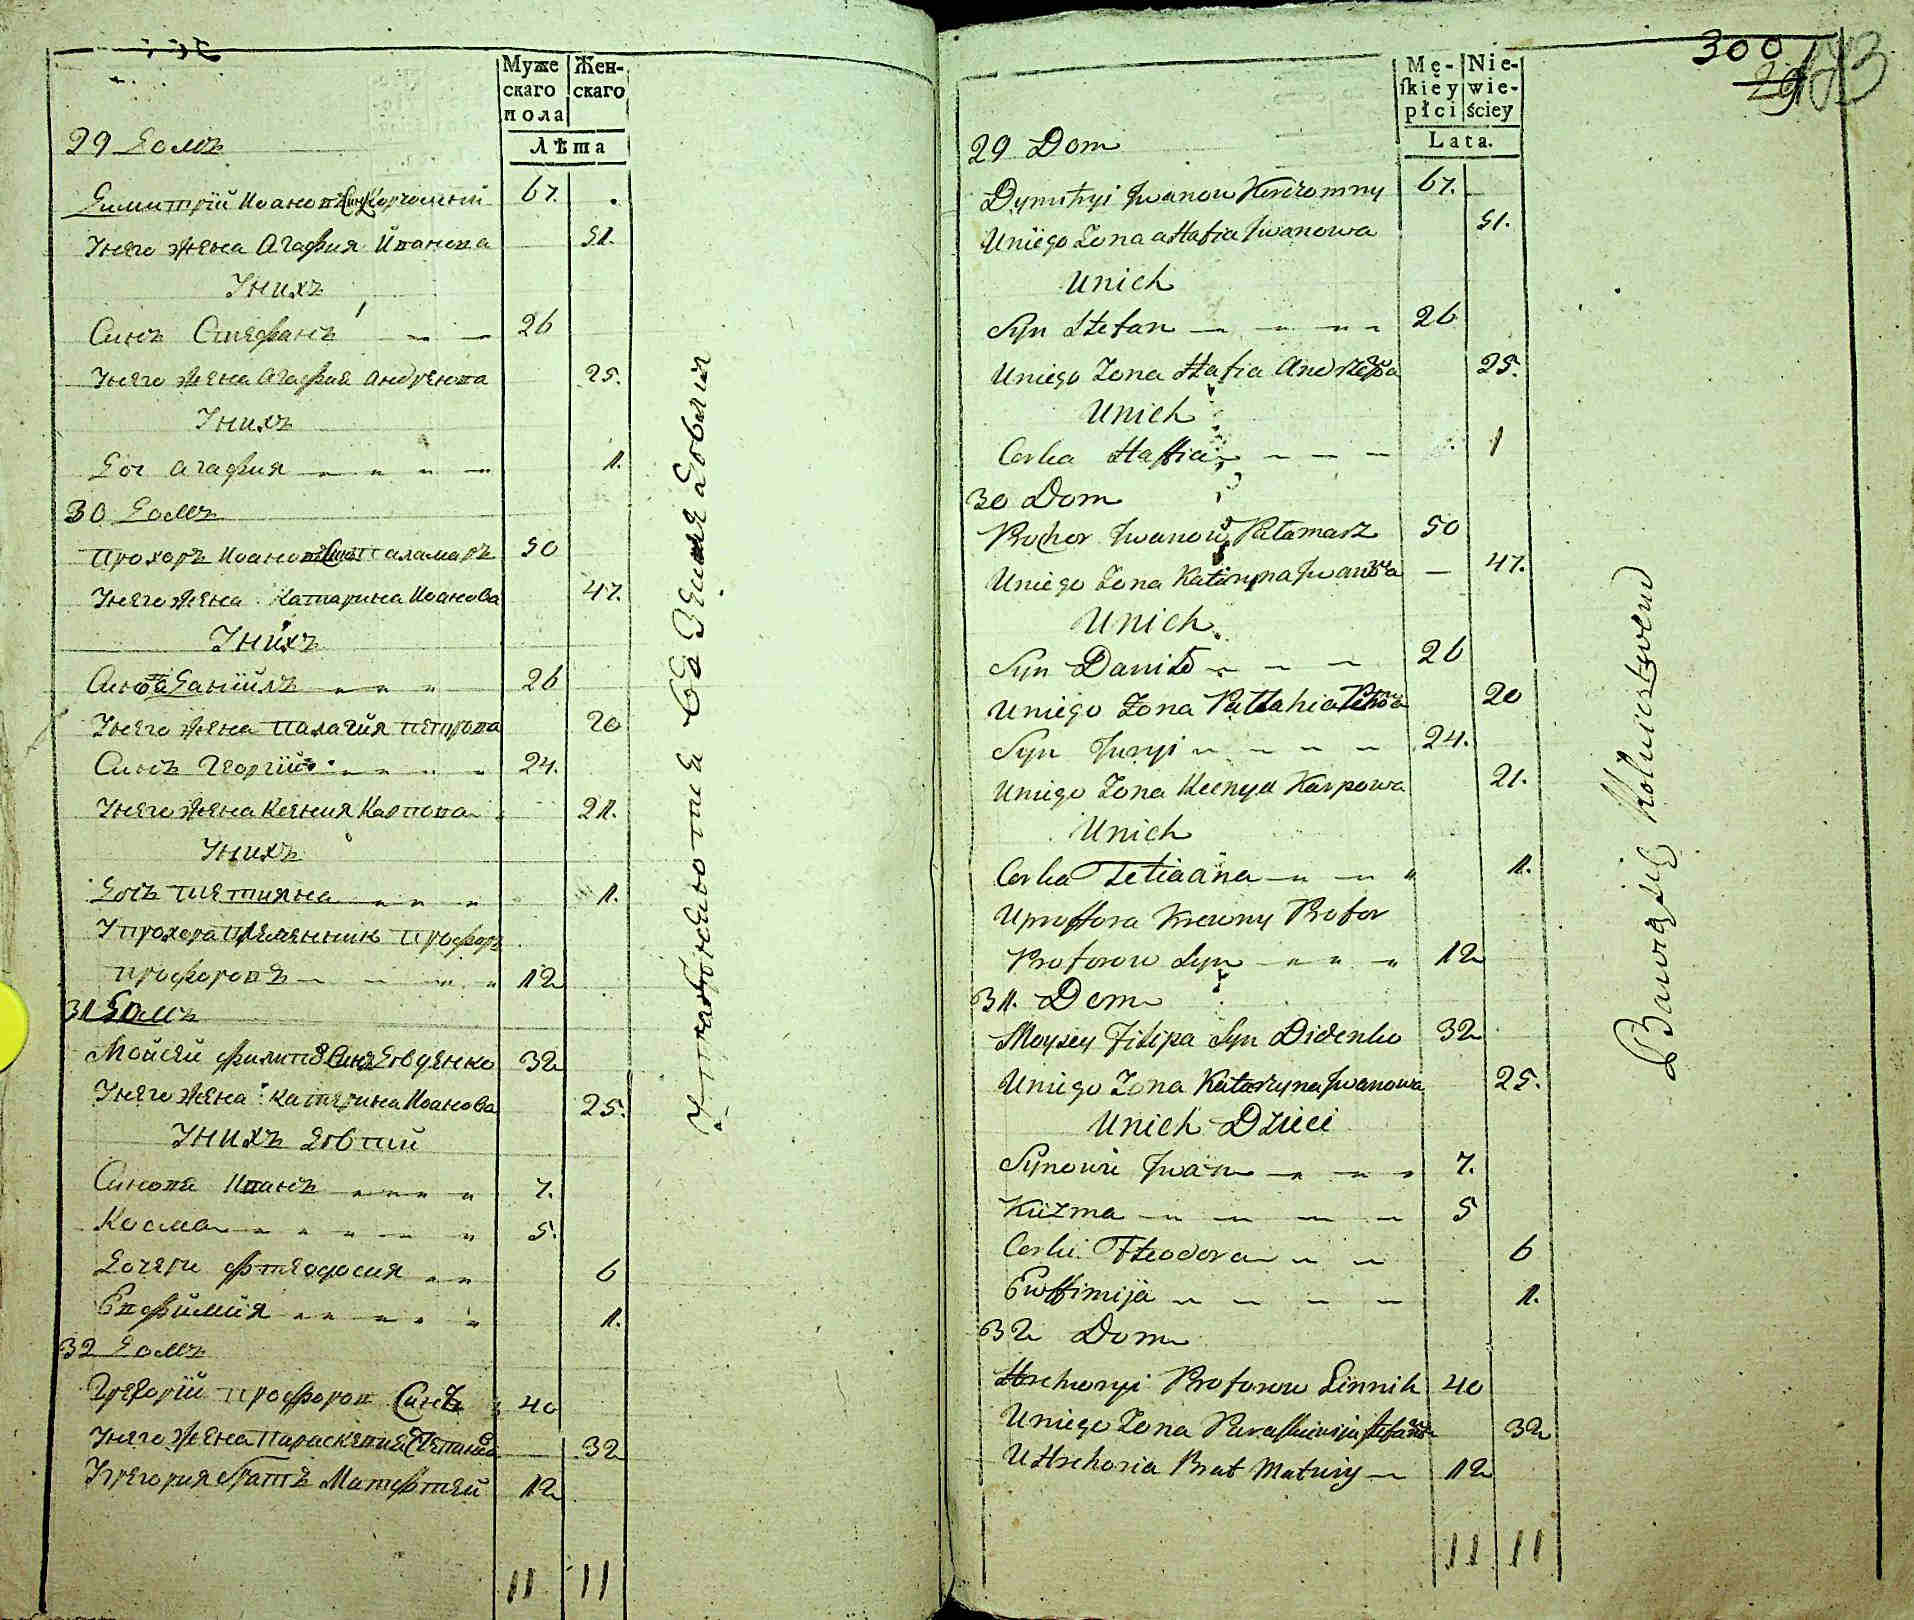 Муже
скаго
пола
Жен-
скаго
Лѣта
29 Домъ
Димитрїй Иоановъ Синъ Корчомный 67.
Унего жена Агафия Иванова 51.
Унихъ
Синъ Стефанъ 26
Унего жена Агафия Андреева 25.
Унихъ
Доч Агафия 1.
30 Домъ
Прохоръ Иоановъ Синъ Паламаръ 50
Унего жена Катарина Иоанова 47.
Унихъ
Синовя Данїилъ 26
Унего жена Палагия Петрова 20
Синъ Георгїй 24.
Унего жена Ксения Карпова 21.
Унихъ
Дочъ Тетияна 1.
У Прохора племенникъ Профоръ
Профоровъ 12
31 Домъ
Мойсей Филипов Синъ Дѣденко 32
Унего жена Катерина Иоанова 25.
Унихъ Дѣтий
Синове Иванъ 7.
Косма 5.
Дочери Фтеодосия 6
Евфимия 1.
32 Домъ
Григорїй Профоров Синъ 40
Унего жена Параскевия Степанова 32
У Григория братъ Матфтей 12
11 11
Упражняются въ Земледѣлии
300
29
Mę-
skiey
płci
Nie-
wie-
ściey
Lata.
29 Dom
Dymitryi Jwanow Korczomny 67.
Uniego Zona aHafia Jwanowa 51.
Unich
Syn Stefan 26
Uniego Zona Hafia Andrzejowa 25.
Unich
Corka Haffia 1
30 Dom
Prochor Jwanow Pałamarz 50
Uniego Zona Katarzyna Jwanowa 47.
Unich
Syn Daniło 26
Uniego Zona Pałłahia Petrowa 20
Syn Juryi 24.
Uniego Zona Xenya Karpowa 21.
Unich
Corka Tetiaäna 1.
Uproffora Krewny Profor
Proforow Syn 12
31. Dom
Moysey Filipa Syn Didenko 32
Uniego Zona Katarzyna Jwanowa 25.
Unich Dzieci
Synowie Jwan 7.
Küzma 5
Corki Fteodora 6
Ewffimija 1.
32 Dom
Hrehoryi Proforow Linnik 40
Uniego Zona Paraskiewija Stefanowa 32
UHrehoria Brat Matwiy 12
11 11
Bawią się Rolnictwem